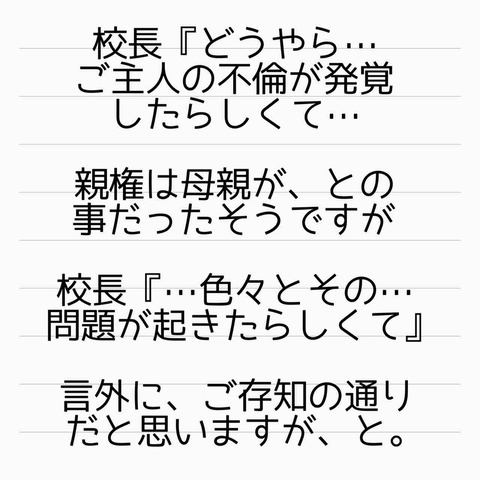 校長『どうやら…
ご主人の不倫が発覚
したらしくて…
親権は母親が、との
事だったそうですが
校長『…色々とその…
問題が起きたらしくて』
言外に、ご存知の通り
だと思いますが、と。